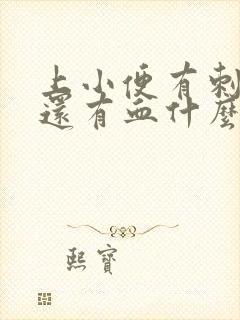 上小便有刺
還有血什麼
熙寶